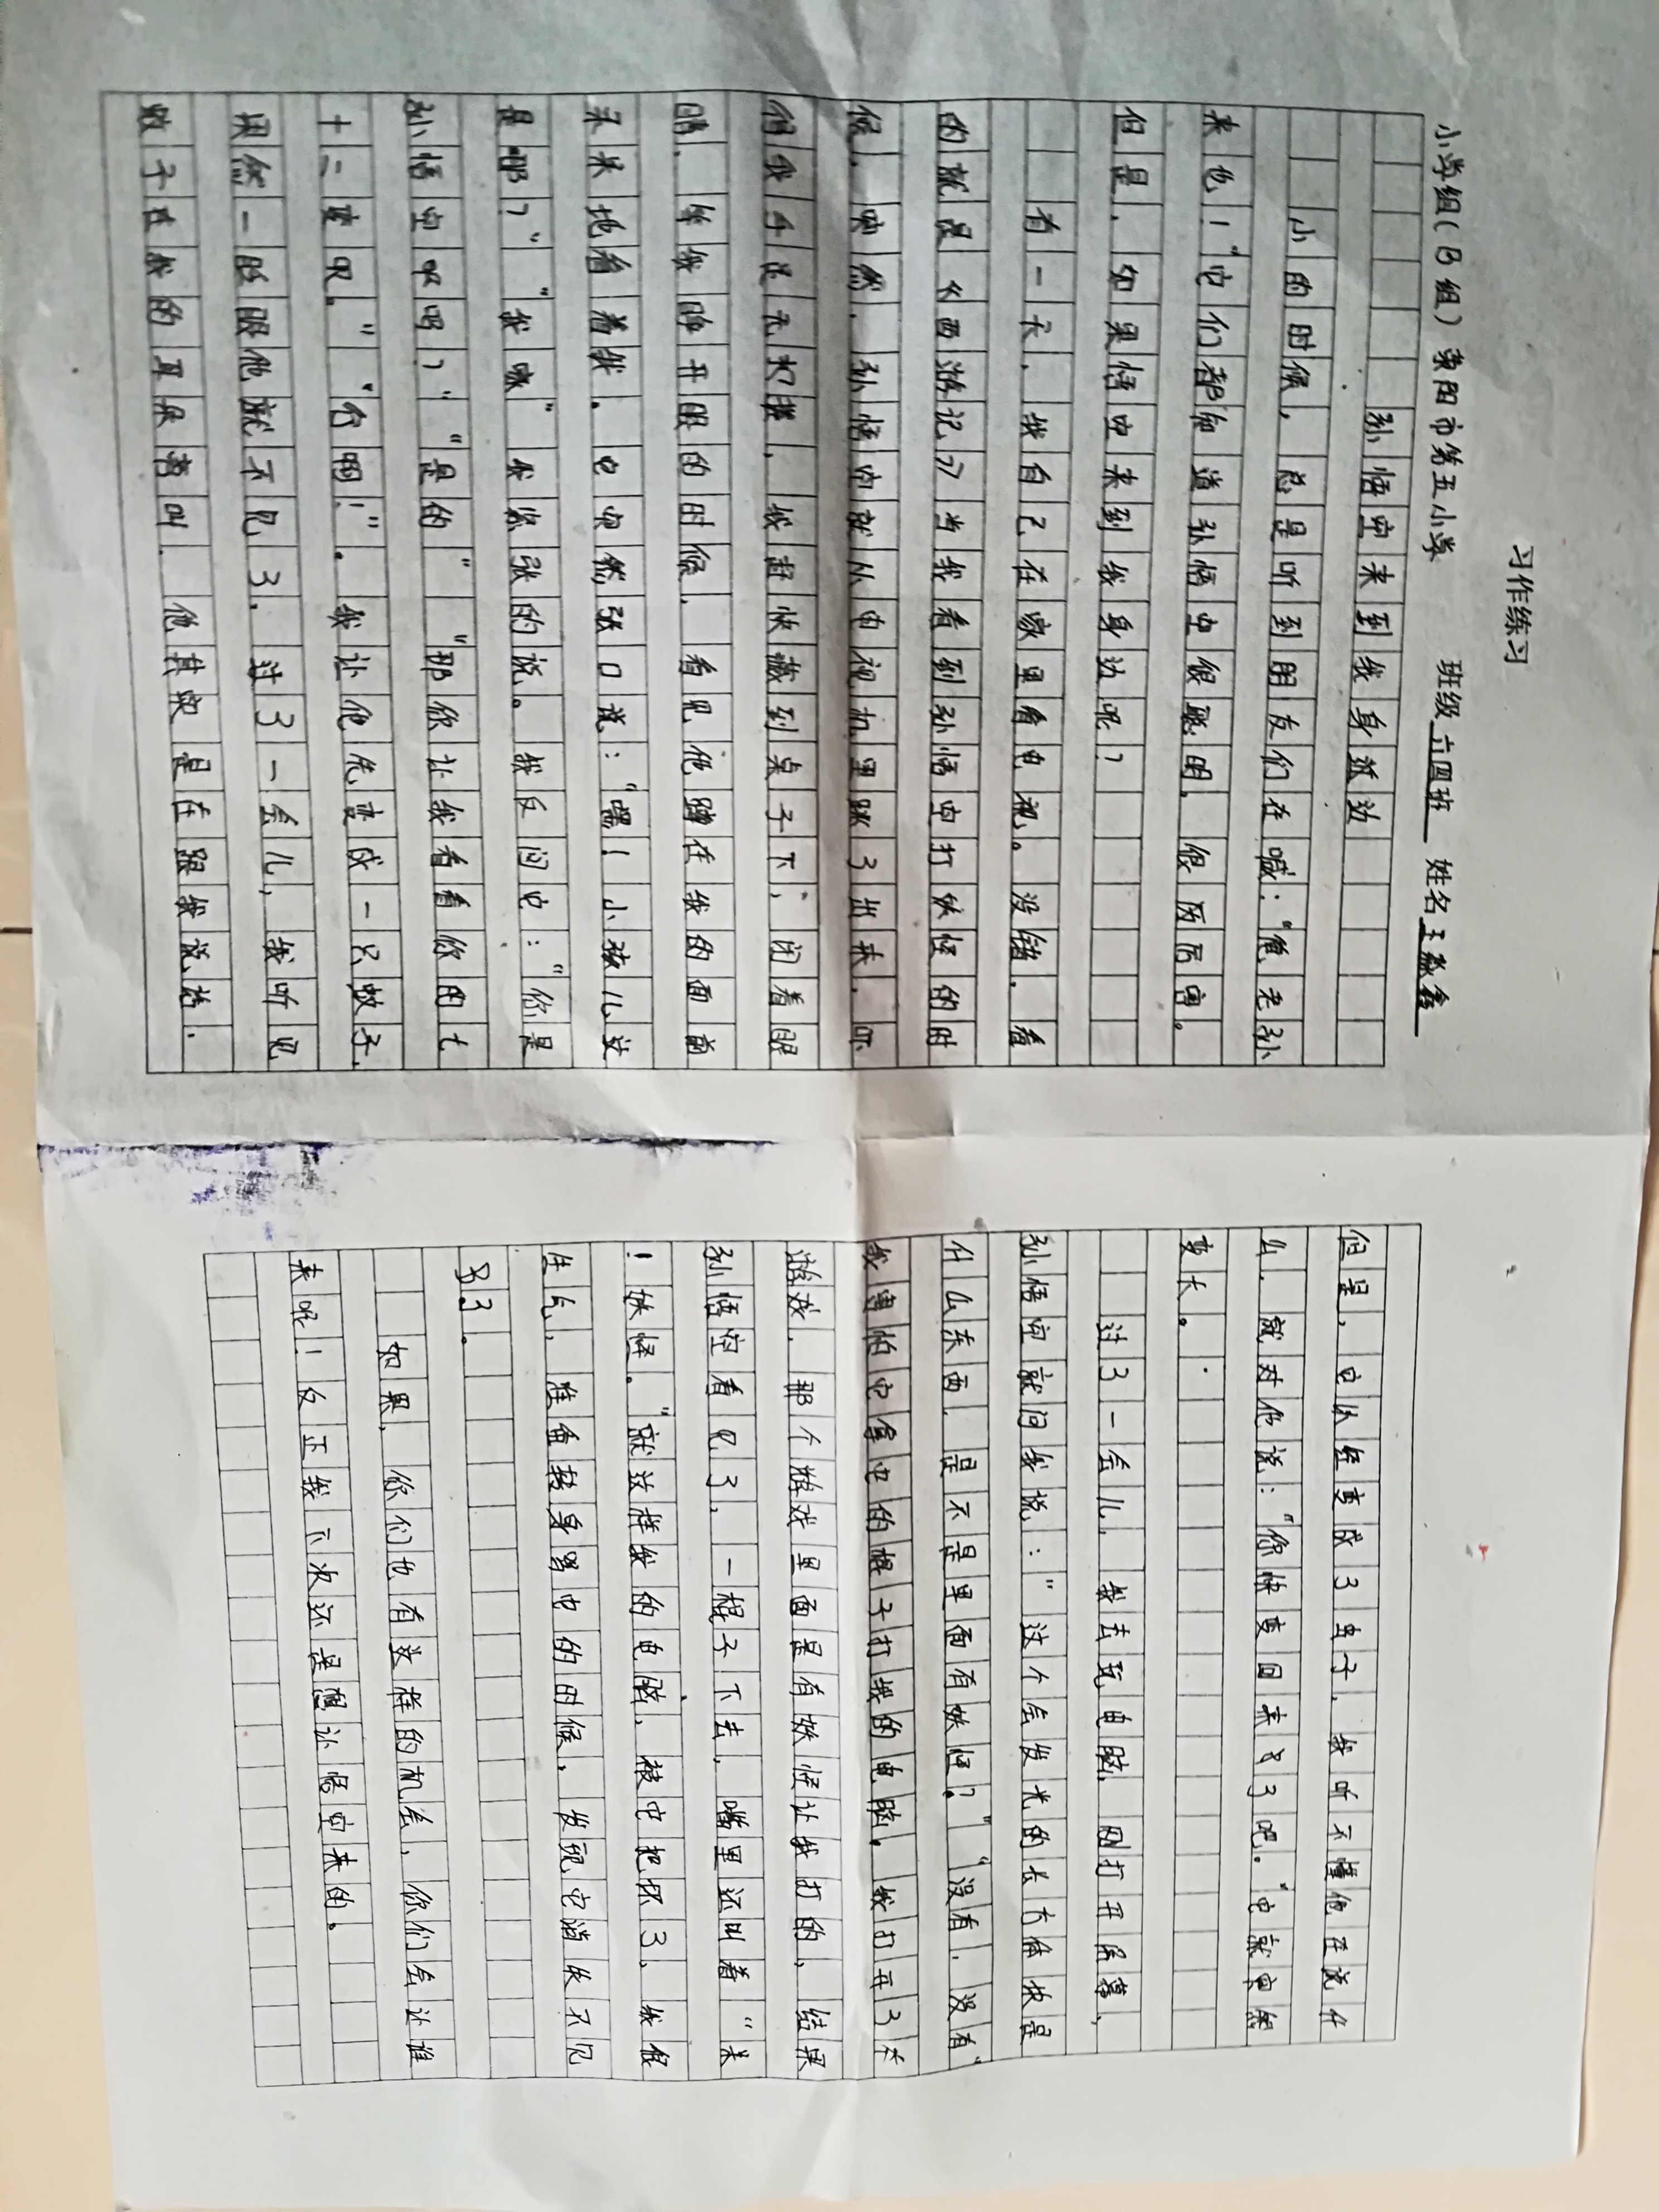 习作练习
小学组(B组) 耒阳市第五小学 班级 六四班 姓名 王淼鑫
孙悟空来到我身边
小的时候，总是听到朋友们在喊：“俺老孙
来也！”它们都知道孙悟空很聪明，很厉害。
但是，如果悟空来到我身边呢？
有一天，我自己在家里看电视。没错，看
的就是《西游记》当我看到孙悟空打妖怪的时
候，突然，孙悟空就从电视机里跳了出来，吓
得我手足无措，我赶快藏到桌子下，闭着眼
睛，等我睁开眼的时候，看见他蹲在我的面前
呆呆地看着我。它突然张口说：“嘿！小孩儿这
是哪？”“我家”我紧张的说。我反问它：“你是
孙悟空吗？”“是的”“那你让我看看你的七
十二变呗。”“行啊！”。我让他先变成一只蚊子，
果然一眨眼他就不见了，过了一会儿，我听见
蚊子在我的耳朵旁叫，他其实是在跟我说话，
但是，它从经变成了虫子，我听不懂他在说什
么，就对他说：“你快变回来吧。”它就突然
变大。
过了一会儿，我去玩电脑，刚打开屏幕，
孙悟空就问我说：”这个会发光的长方体块是
什么东西，是不是里面有妖怪？”“没有，没有”
我害怕它拿它的棍子打我的电脑。我打开了
游戏，那个游戏里面是有妖怪让我打的，结果
孙悟空看见了，一棍子下去，嘴里还叫着“
！妖怪。”就这样我的电脑，被它把坏了，我很
生气，准备转身骂它的时候，发现它消失不见
了。
如果，你们也有这样的机会，你们会让谁
来呢！反正我下次还是想让悟空来的。